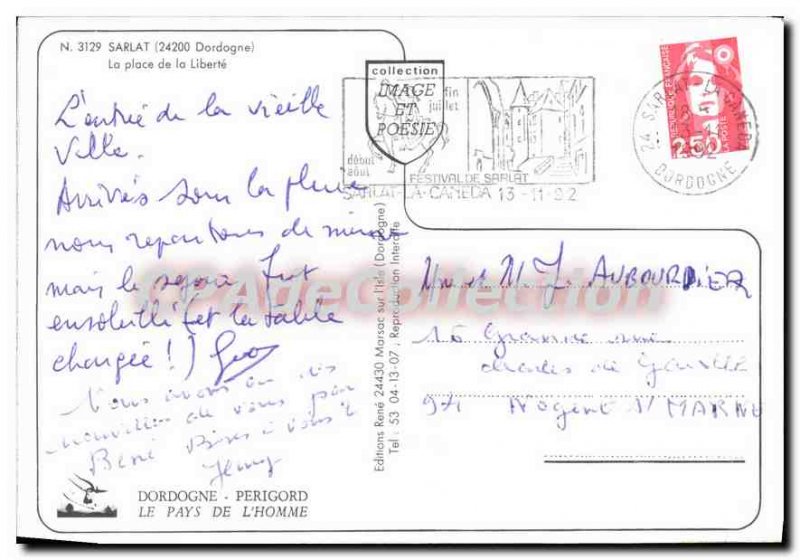 N. 3129 SARLAT (24200 Dordogne)
La place de la Liberté
L'entrée de la vieille
Ville.
Arrivés sous la pluie
nous repartons de même
mais le séjour fut
ensoleillé (et la table
chargée!) Geo
Nous avons eu des
nouvelles de vous par
René Bises à vous 2
Jenny
DORDOGNE - PERIGORD
LE PAYS DE L'HOMME
collection
IMAGE
ET
POESIE
fin
juillet
début
août
FESTIVAL DE SARLAT
SARLAT-LA-CANEDA 13-11-92
REPUBLIQUE FRANÇAISE
2,50
LA POSTE
24 SARLAT-LA-CANEDA
DORDOGNE
Editions René 24430 Marsac sur l'Isle (Dordogne)
Tel : 53 04-13-07 - Reproduction Interdite
CPAgeCollection
Mme M J. AUBOURDIER
16 grande rue
charles de Gaulle
94 NOGENT S/ MARNE